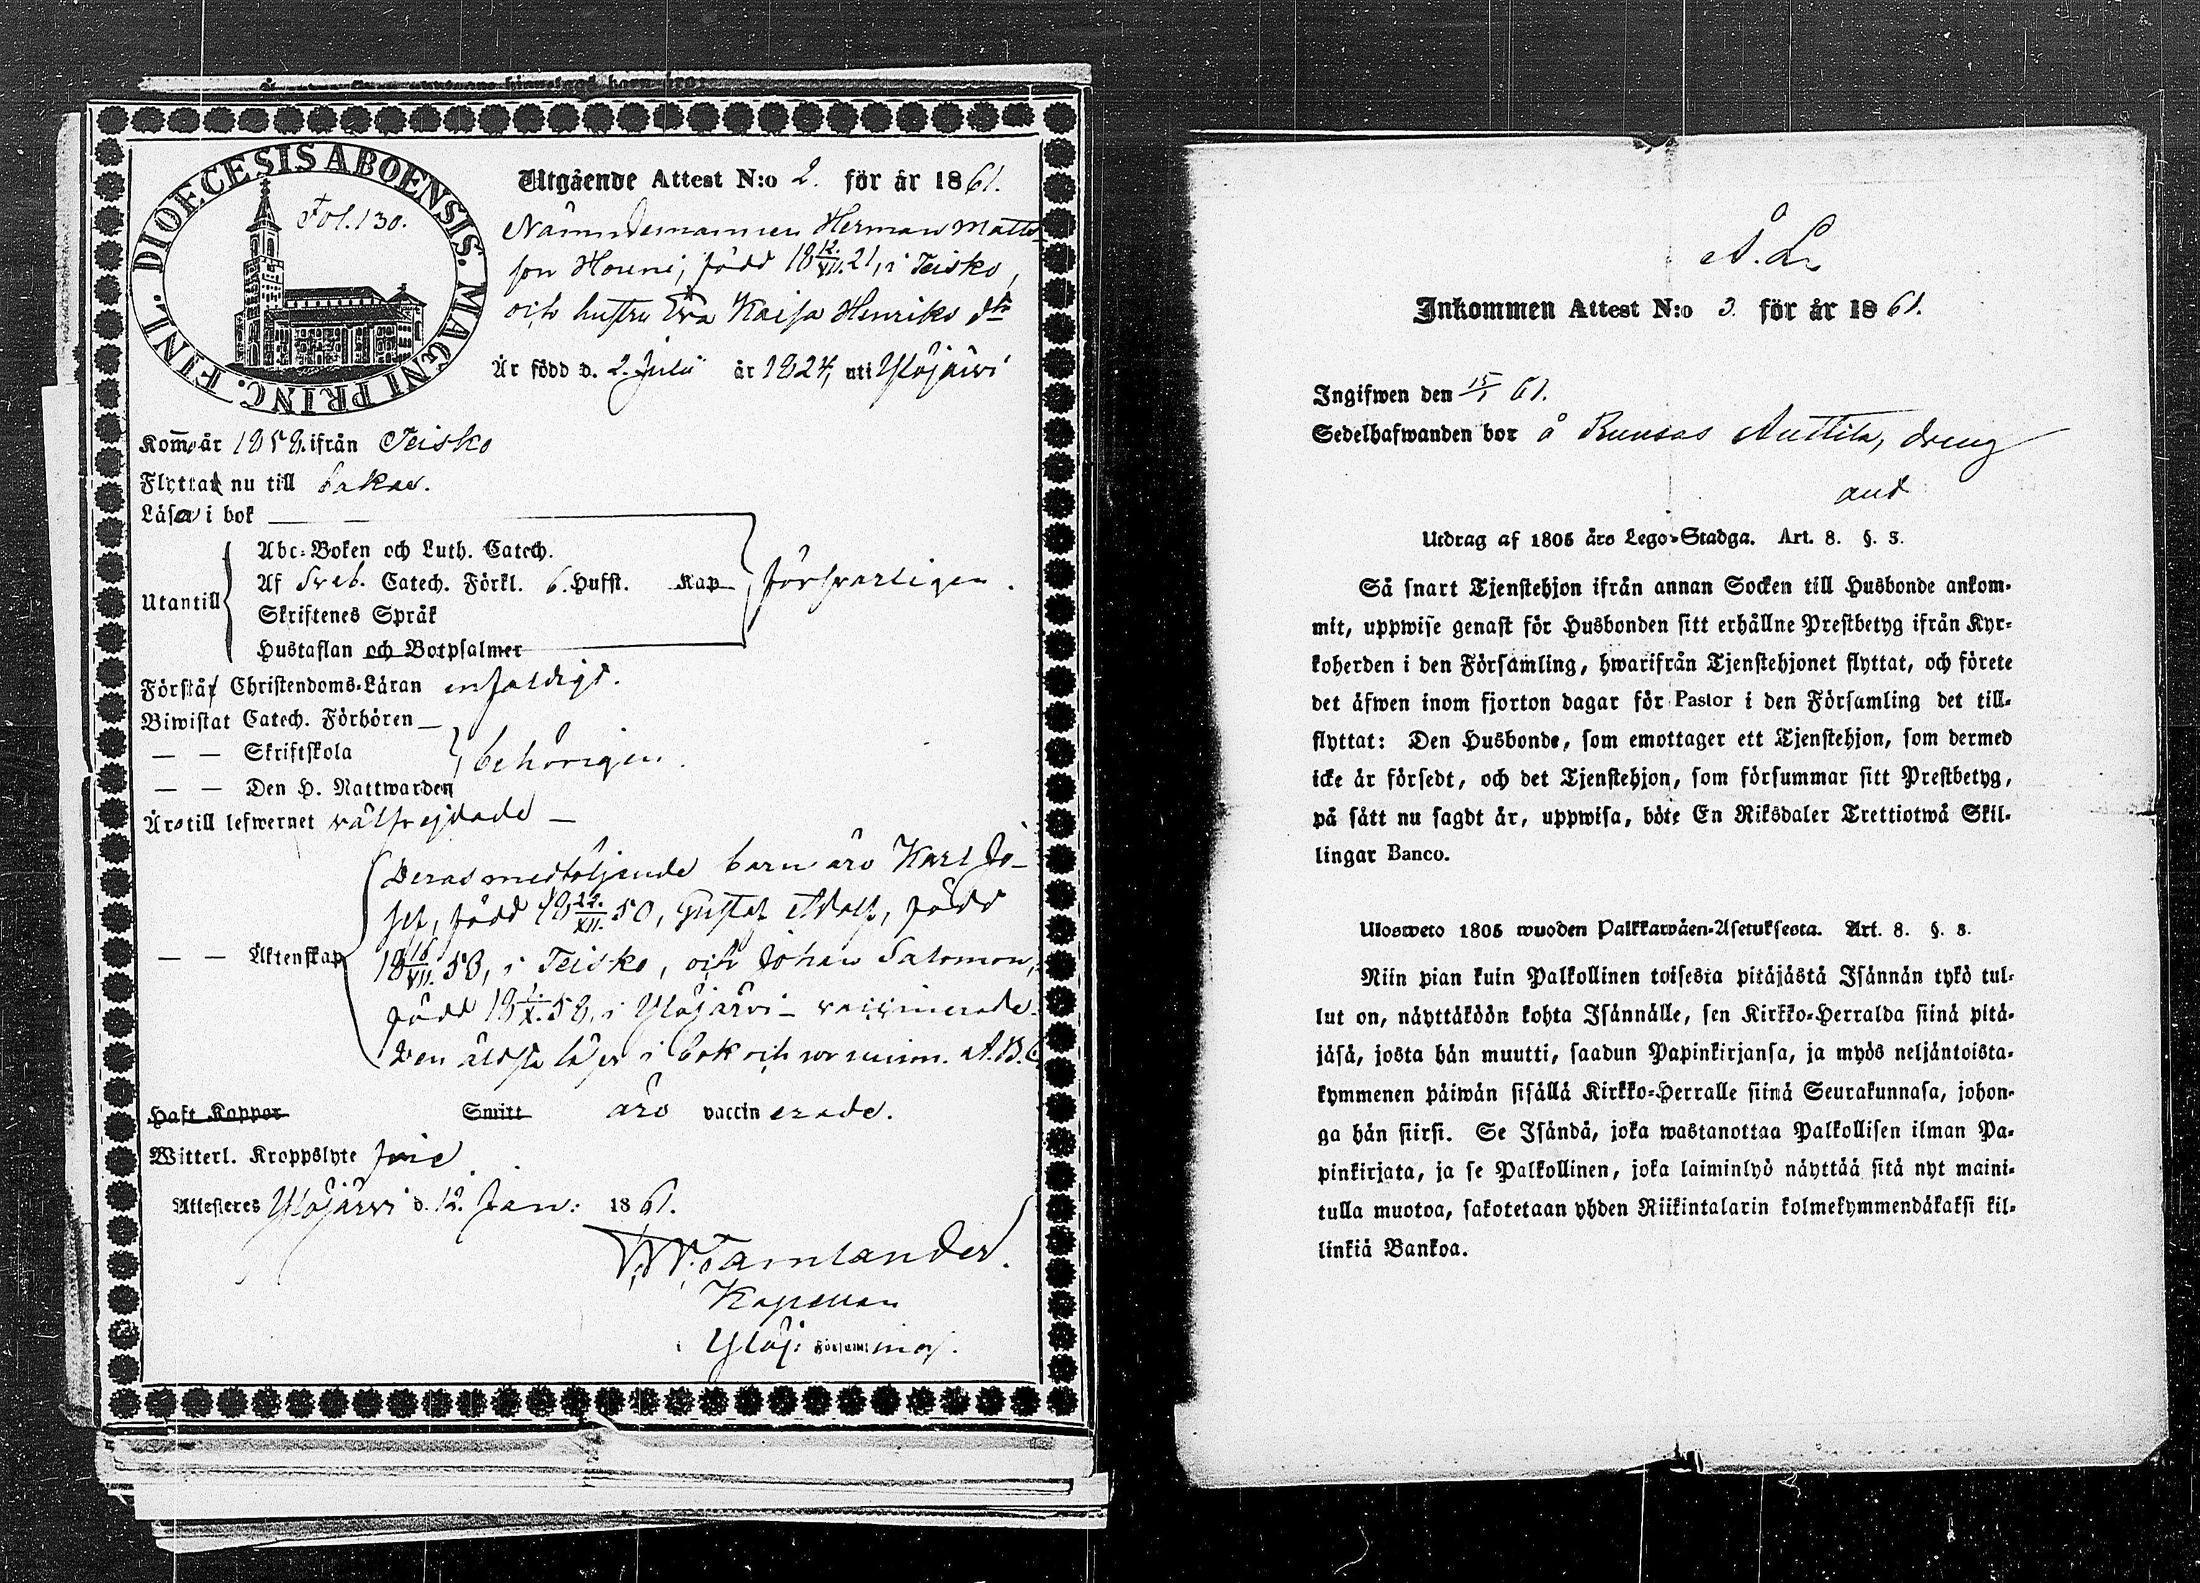 DIOECESIS ABOENSIS. MAGNI PRINC. FINL.
Fol. 130.
Utgående Attest N:o 2. för år 1861.
Nämndemannen Herman Matts
son Houni, född 18 12/VII. 21, i Teisko,
och hustru Eva Kaisa Henriks dr
Är född d. 2. Julii år 1824, uti Ylöjärvi
Kom. år 1858. ifrån Teisko
Flyttat nu till
Läsa i bok
Abc-Boken och Luth. Catech.
Af Sveb. Catech. Förkl. 6. Hufst. Kap
Utantill
försvarligen.
Skriftenes Språk
Hustaflan och Botpsalmer
Förstå Christendoms-Läran enfaldigt.
Biwistat Catech. Förhören
— — Skriftskola
behörigen.
— — Den H. Nattwarden
Äro till lefwernet välfrejdade —
Deras medföljande barn äro Karl Jo-
sef, född 18 22./XII. 50, Gustaf Adolf, född
— — Äktenskap
18 16/VII. 53, i Teisko, och Johan Salomon,
född 18 1./X. 58, i Ylöjärvi – vaccinerade.
Den äldsta läser i bok och ur minn. A.B.C
Haft Koppor Smitt äro vaccinerade.
Witterl. Kroppslyte frie
Attesteres Ylöjärvi d. 12. Jan: 1861.
W. Tamlander.
Kapellan
i Ylöj: Församling.
Å. L.
Inkommen Attest N:o 3. för år 1861.
Ingifwen den 15/1 61.
Sedelhafwanden bor å Anttila, dreng
and
Utdrag af 1805 års Lego-Stadga. Art. 8. §. 3.
Så snart Tjenstehjon ifrån annan Socken till Husbonde ankom-
mit, uppwise genast för Husbonden sitt erhållne Prestbetyg ifrån Kyr-
koherden i den Församling, hwarifrån Tjenstehjonet flyttat, och förete
det äfwen inom fjorton dagar för Pastor i den Församling det till-
flyttat: Den Husbonde, som emottager ett Tjenstehjon, som dermed
icke är försedt, och det Tjenstehjon, som försummar sitt Prestbetyg,
på sätt nu sagdt är, uppwisa, böte En Riksdaler Trettiotwå Skil-
lingar Banco.
Ulosweto 1805 wuoden Palkkawäen-Asetuksesta. Art. 8. §. 3.
Niin pian kuin Palkollinen toisesta pitäjästä Isännän tykö tul-
lut on, näyttäköön kohta Isännälle, sen Kirkko-Herralda siinä pitä-
jäsä, josta hän muutti, saadun Papinkirjansa, ja myös neljäntoista-
kymmenen päiwän sisällä Kirkko-Herralle siinä Seurakunnasa, johon-
ga hän siirsi. Se Isändä, joka wastanottaa Palkollisen ilman Pa-
pinkirjata, ja se Palkollinen, joka laiminlyö näyttää sitä nyt maini-
tulla muotoa, sakotetaan yhden Riikintalarin kolmekymmendäkaksi kil-
linkiä Bankoa.